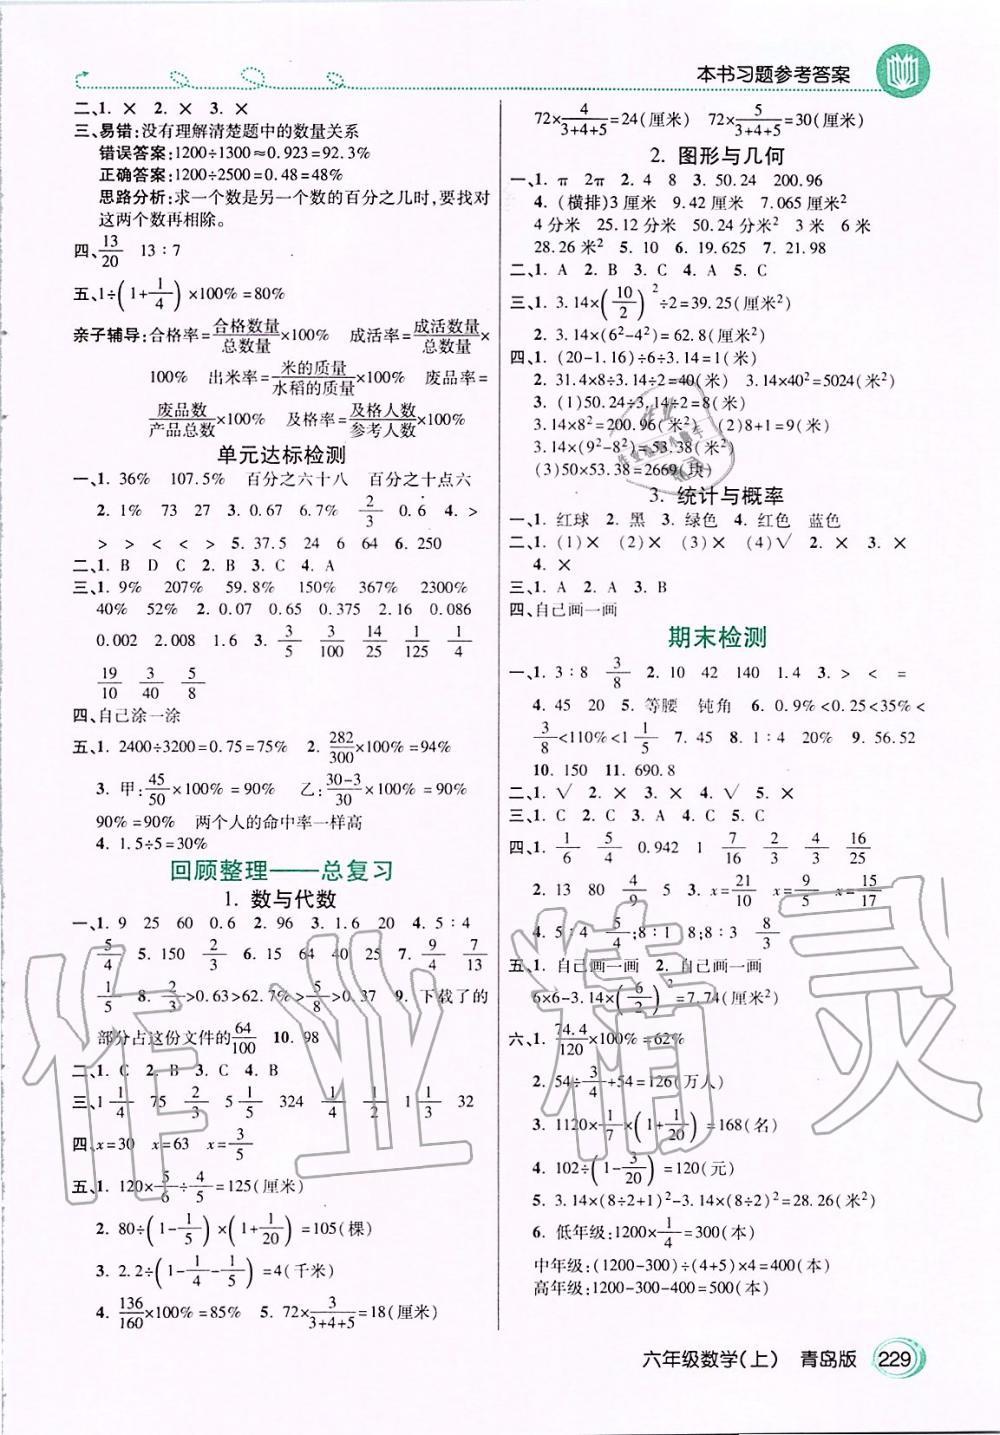 本书习题参考答案
二、1. × 2. × 3. ×
三、易错:没有理解清楚题中的数量关系
错误答案:1200÷1300≈0.923=92.3%
正确答案:1200÷2500=0.48=48%
思路分析:求一个数是另一个数的百分之几时,要找对
这两个数再相除。
四、13/20 13∶7
五、1÷(1+1/4)×100%=80%
亲子辅导:合格率=合格数量/总数量×100% 成活率=成活数量/总数量×
100% 出米率=米的质量/水稻的质量×100% 废品率=
废品数/产品总数×100% 及格率=及格人数/参考人数×100%
单元达标检测
一、1. 36% 107.5% 百分之六十八 百分之十点六
2. 1% 73 27 3. 0.67 6.7% 2/3 0.6 4. >
> > < < > 5. 37.5 24 6 64 6. 250
二、1. B D C 2. B 3. C 4. A
三、1. 9% 207% 59.8% 150% 367% 2300%
40% 52% 2. 0.07 0.65 0.375 2.16 0.086
0.002 2.008 1.6 3. 3/5 3/100 14/25 1/125 1/4
19/10 3/40 5/8
四、自己涂一涂
五、1. 2400÷3200=0.75=75% 2. 282/300×100%=94%
3. 甲:45/50×100%=90% 乙:30-3/30×100%=
90% 90%=90% 两个人的命中率一样高
4. 1.5÷5=30%
回顾整理——总复习
1. 数与代数
一、1. 9 25 60 0.6 2. 96 3. 1.6 20 4. 5∶4
5/4 5. 150 2/3 6. 50 64 40 25 7. 9/4 7/13
1/5 8. 2/3>0.63>62.7%>5/8>0.37 9. 下载了的
部分占这份文件的64/100 10. 98
二、1. C 2. B 3. C 4. B
三、1 1/4 75 2/3 5 1/5 324 1/4 1/2 1 1/3 32
四、x=30 x=63 x=3/5
五、1. 120×5/6÷4/5=125(厘米)
2. 80÷(1-1/5)×(1+1/20)=105(棵)
3. 2.2÷(1-1/4-1/5)=4(千米)
4. 136/160×100%=85% 5. 72×3/3+4+5=18(厘米)
72×4/3+4+5=24(厘米) 72×5/3+4+5=30(厘米)
2. 图形与几何
一、1. π 2π 2. 4 8 3. 50.24 200.96
4. (横排)3厘米 9.42厘米 7.065厘米²
4分米 25.12分米 50.24分米² 3米 6米
28.26米² 5. 10 6. 19.625 7. 21.98
二、1. A 2. B 3. C 4. A 5. C
三、1. 3.14×(10/2)²÷2=39.25(厘米²)
2. 3.14×(6²-4²)=62.8(厘米²)
四、1. (20-1.16)÷6÷3.14=1(米)
2. 31.4×8÷3.14÷2=40(米) 3.14×40²=5024(米²)
3. (1)50.24÷3.14÷2=8(米)
3.14×8²=200.96(米²) (2)8+1=9(米)
3.14×(9²-8²)=53.38(米²)
(3)50×53.38=2669(块)
3. 统计与概率
一、1. 红球 2. 黑 3. 绿色 4. 红色 蓝色
二、1. (1)× (2)× (3)× (4)√ 2. × 3. ×
4. ×
三、1. A 2. A 3. B
四、自己画一画
期末检测
一、1. 3∶8 3/8 2. 10 42 140 1.4 3. > < =
4. 45 20 5. 等腰 钝角 6. 0.9%<0.25<35%<
3/8<110%<1 1/5 7. 45 8. 1∶4 20% 9. 56.52
10. 150 11. 690.8
二、1. √ 2. × 3. × 4. √ 5. ×
三、1. C 2. C 3. A 4. C 5. C
四、1. 1/6 5/4 0.942 1 7/16 2/3 4/3 16/25
2. 13 80 4/9 5 3. x=21/10 x=9/5 x=15/17
4. 5∶4 5/4;8∶1 8;8∶3 8/3
五、1. 自己画一画 2. 自己画一画
6×6-3.14×(6/2)²=7.74(厘米²)
六、1. 74.4/120×100%=62%
2. 54÷3/4+54=126(万人)
3. 1120×1/7×(1+1/20)=168(名)
4. 102÷(1-3/20)=120(元)
5. 3.14×(8÷2+1)²-3.14×(8÷2)²=28.26(米²)
6. 低年级:1200×1/4=300(本)
中年级:(1200-300)÷(4+5)×4=400(本)
高年级:1200-300-400=500(本)
作业精灵
六年级数学(上) 青岛版 229